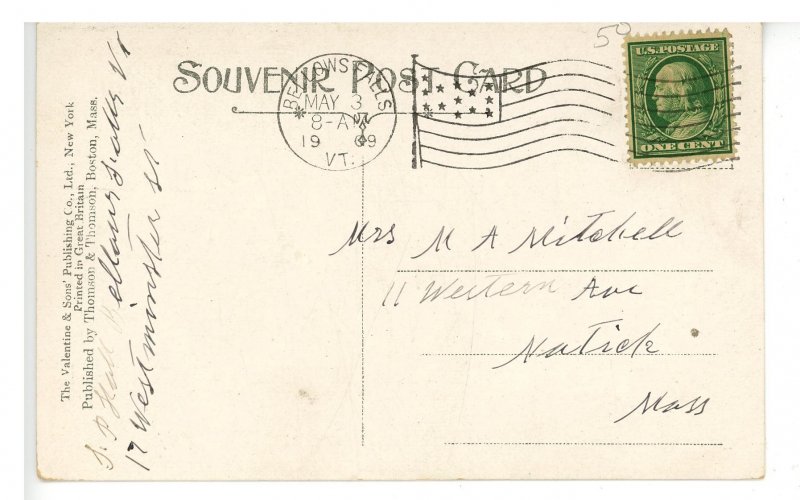 50
U.S. POSTAGE
ONE CENT
SOUVENIR POST CARD
BELLOWS FALLS
MAY 3
8-AM
1909
VT.
Mrs M A Mitchell
11 Western Ave
Natick
Mass
The Valentine & Sons' Publishing Co., Ltd., New York
Printed in Great Britain
Published by Thomson & Thomson, Boston, Mass.
Hall Bellows Falls Vt
17 Westminster St